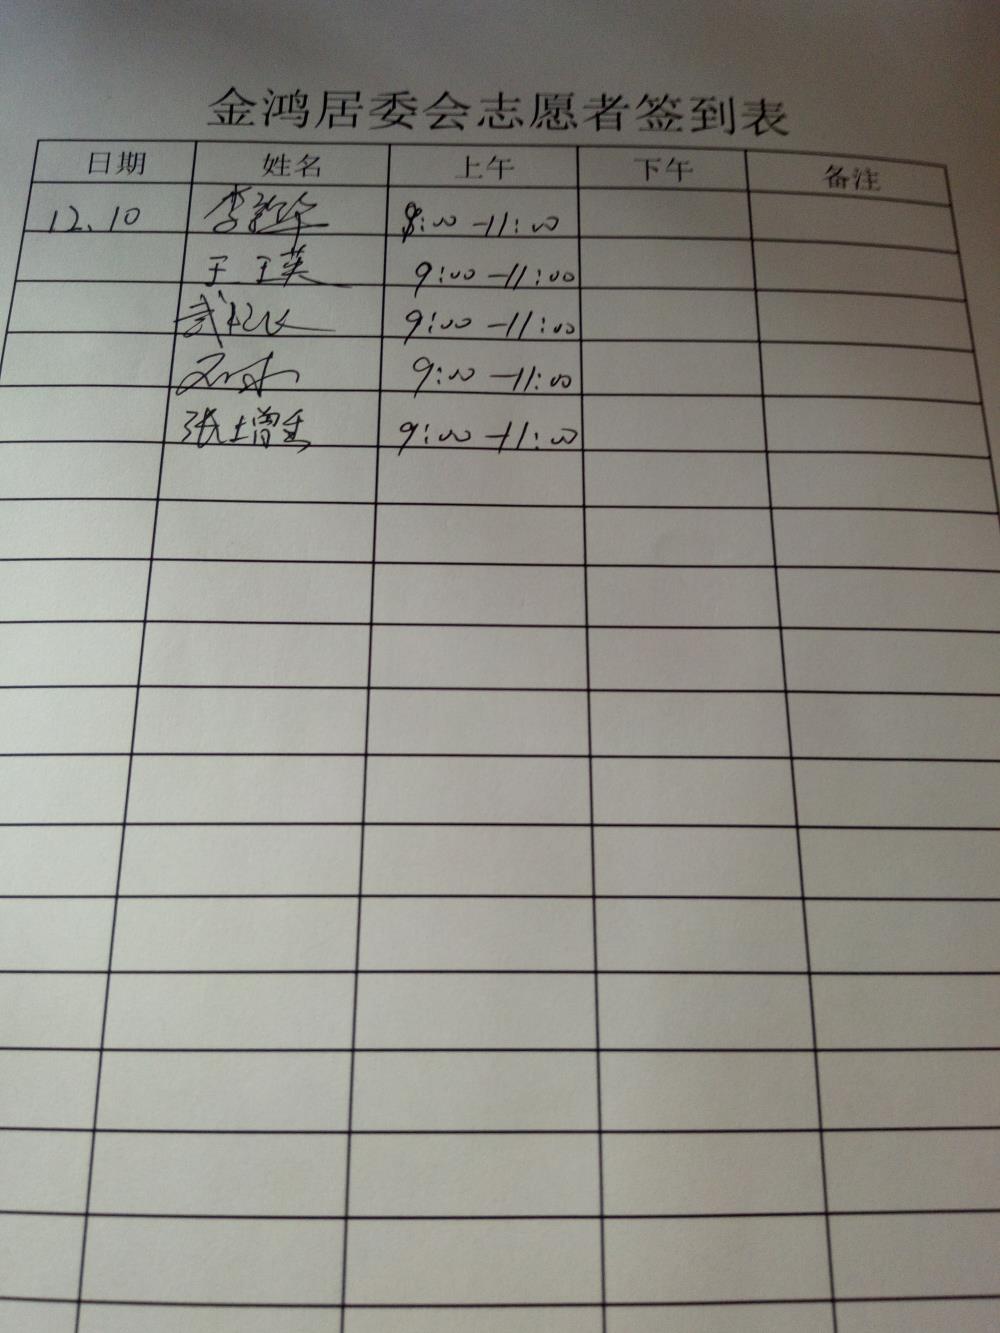 金鸿居委会志愿者签到表
日期 姓名 上午 下午 备注
12.10 李 9:00-11:00
于玉英 9:00-11:00
武 9:00-11:00
9:00-11:00
张增 9:00-11:00